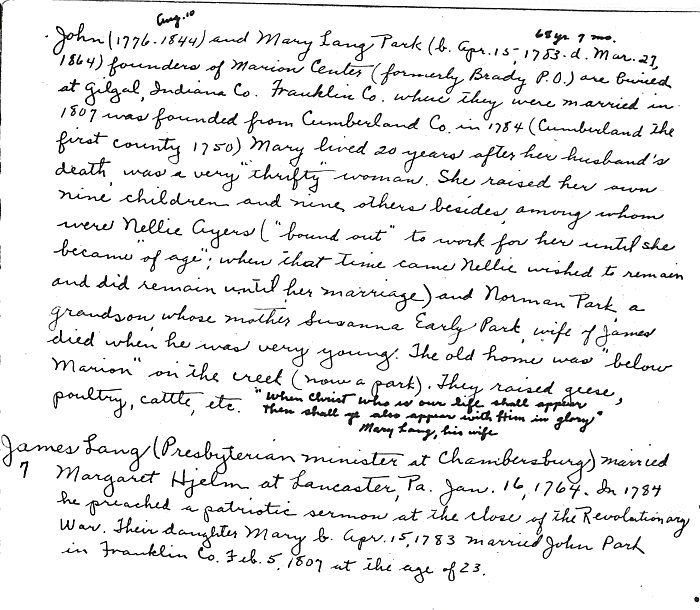 Aug. 10
68 yr 7 mo.
John (1776-1844) and Mary Lang Park (b. Apr. 15, 1783-d. Mar. 27,
1864) founders of Marion Center (formerly Brady P.O.) are buried
at Gilgal, Indiana Co. Franklin Co. where they were married in
1807 was founded from Cumberland Co. in 1784 (Cumberland the
first county 1750) Mary lived 20 years after her husband's
death, was a very "thrifty" woman. She raised her own
nine children and nine others besides, among whom
were Nellie Ayers ("bound out" to work for her until she
became "of age"; when that time came Nellie wished to remain
and did remain until her marriage) and Norman Park, a
grandson, whose mother Susanna Early Park, wife of James
died when he was very young. The old home was "below
Marion" on the creek (now a park). They raised geese,
poultry, cattle, etc. "When Christ who is our life shall appear
then shall ye also appear with Him in glory"
Mary Lang, his wife
James Lang (Presbyterian minister at Chambersburg) married
7 Margaret Hjelm at Lancaster, Pa. Jan. 16, 1764. In 1784
he preached a patriotic sermon at the close of the Revolutionary
War. Their daughter Mary b. Apr. 15, 1783 married John Park
in Franklin Co. Feb. 5, 1807 at the age of 23.